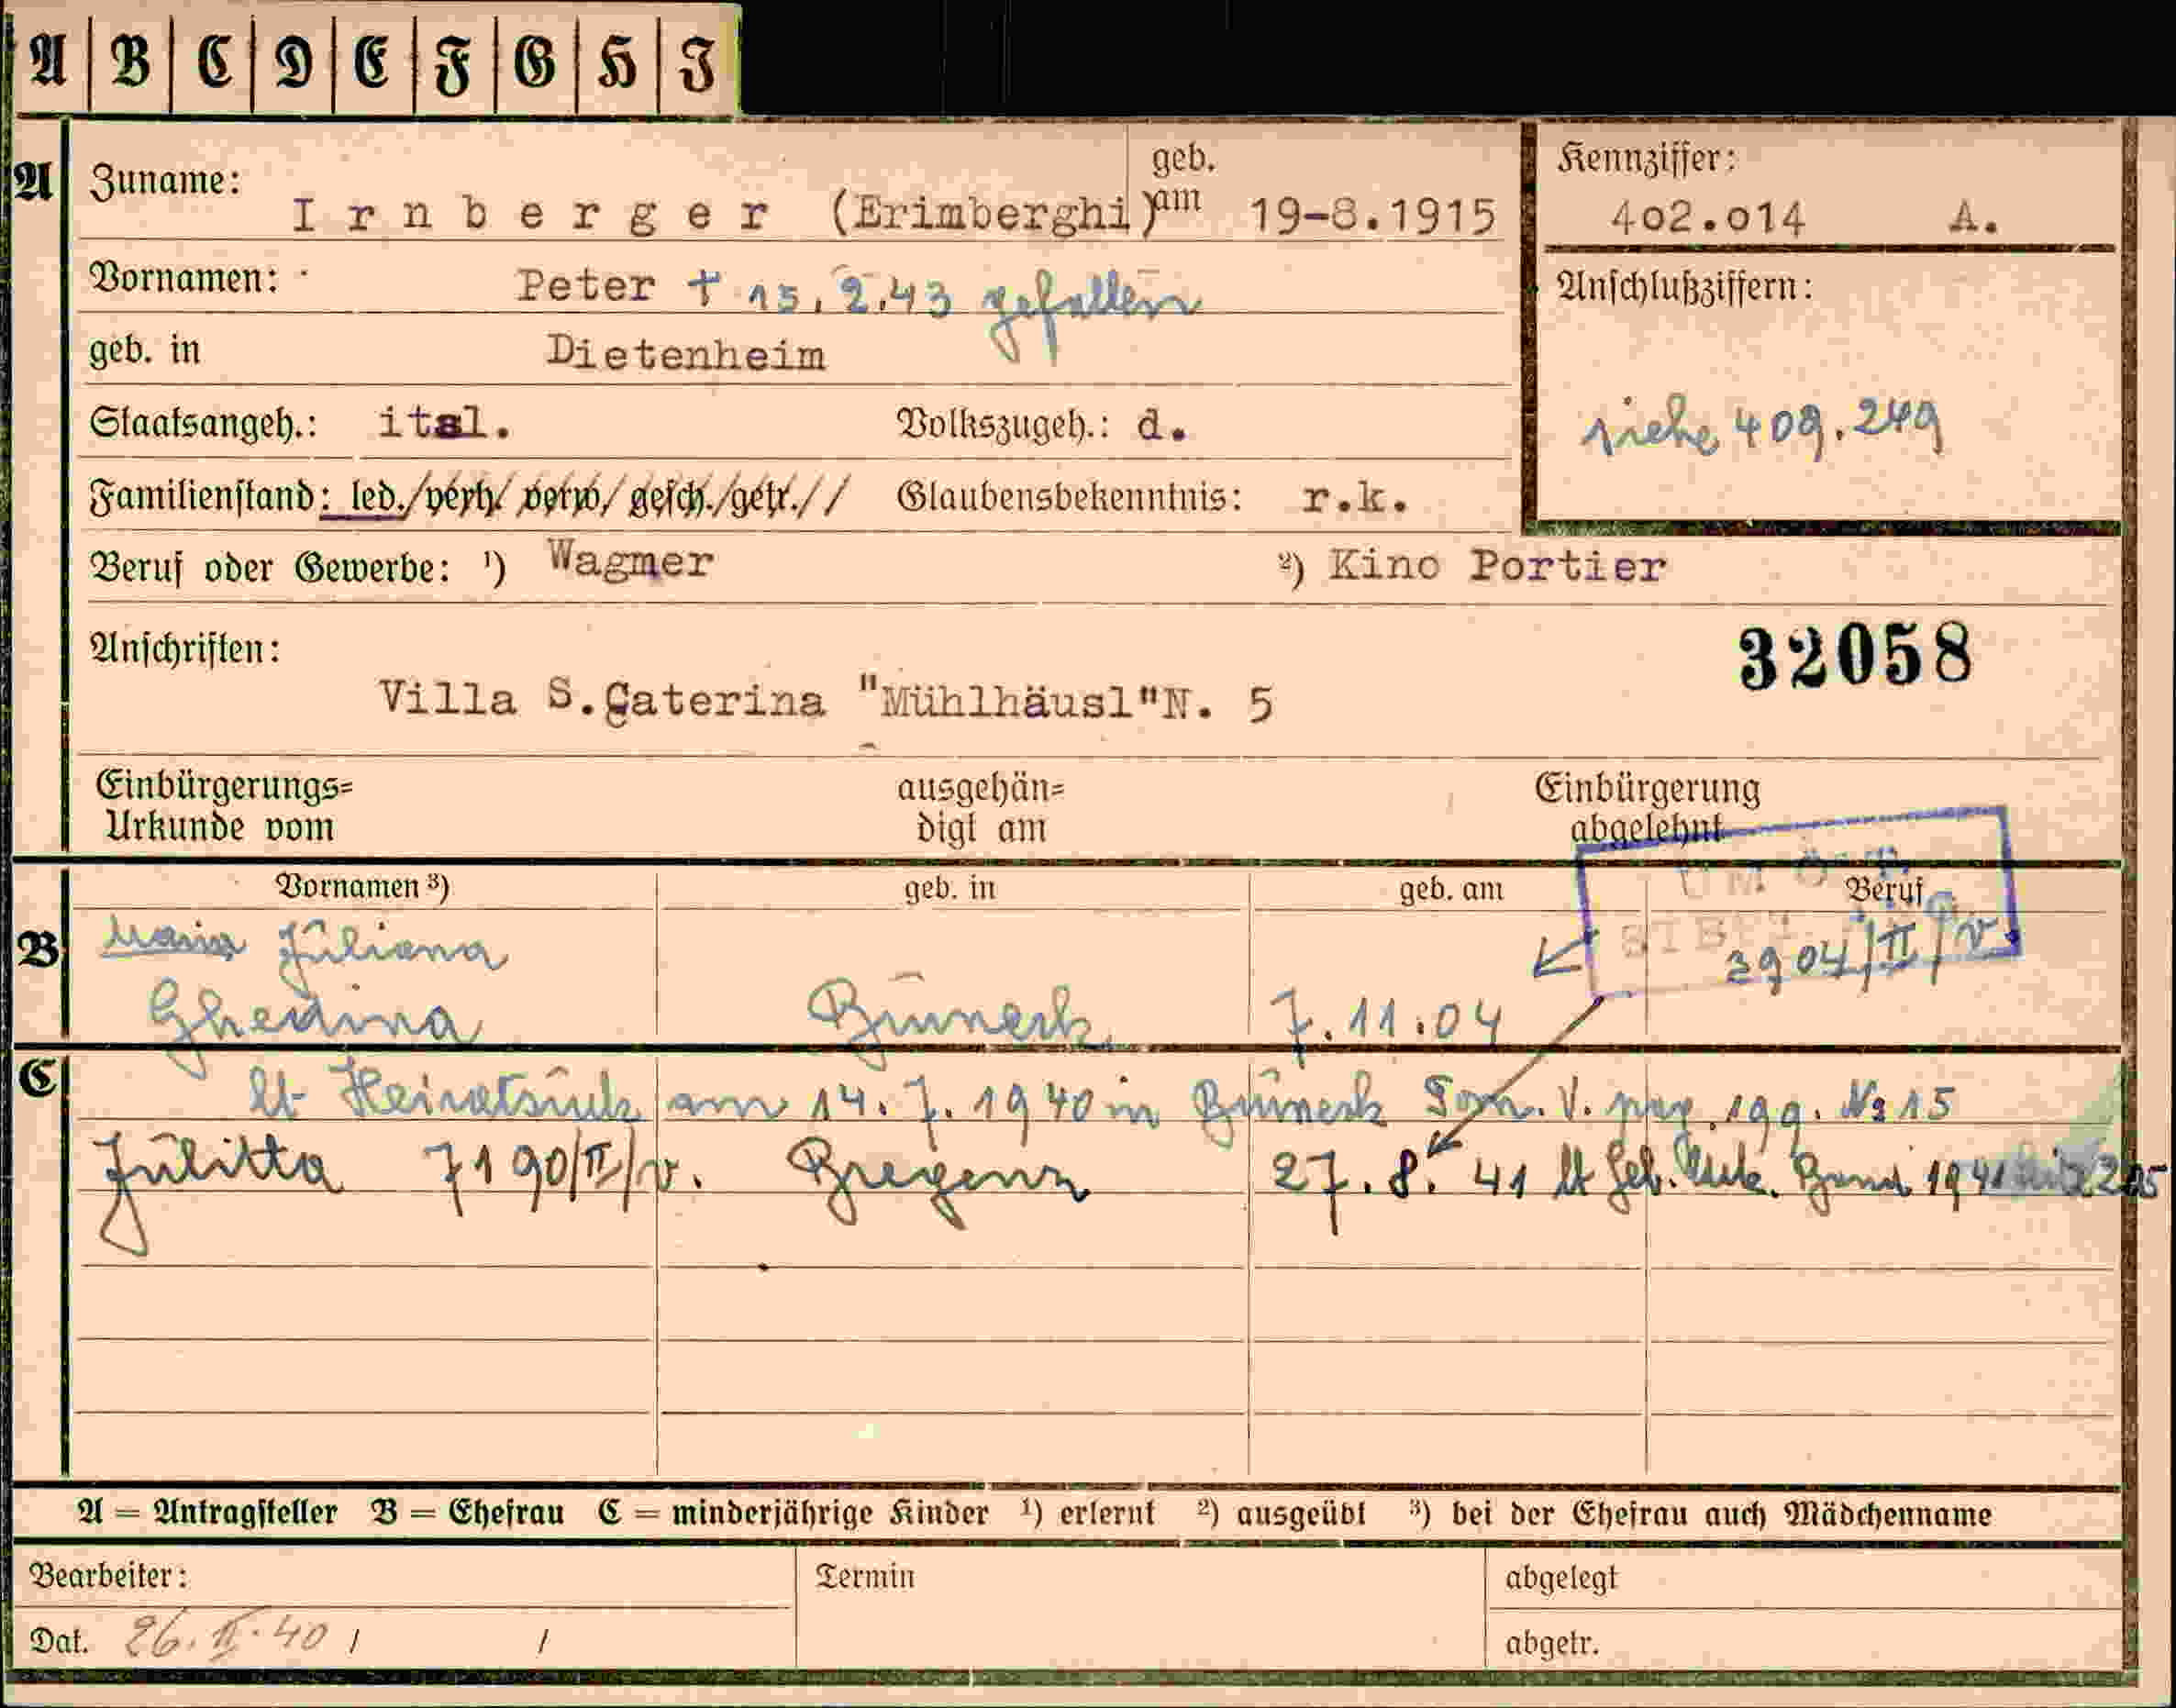 A B C D E F G H I
A Zuname: Irnberger (Erimberghi) geb. am 19-8.1915
Kennziffer: 402.014 A.
Vornamen: Peter † 15.2.43 gefallen
Anschlußziffern:
geb. in Dietenheim
siehe 409.249
Staatsangeh.: ital. Volkszugeh.: d.
Familienstand: led./verh./verw/gesch./getr.// Glaubensbekenntnis: r.k.
Beruf oder Gewerbe: ¹) Wagmer ²) Kino Portier
32058
Anschriften:
Villa S.Caterina "Mühlhäusl"N. 5
Einbürgerungs= Urkunde vom
ausgehän= digt am
Einbürgerung abgelehnt
Vornamen ³) geb. in geb. am Beruf
B Maria Juliana
3904/II/v
Ghedina Bruneck 7.11.04
C lt Heiratsurk am 14.7.1940 in Bruneck Tom. V. pag. 199. No 15
Julitta 7190/II/v. Bregenz 27.8.41 lt Geb. Urk. Band 1941
A = Antragsteller B = Ehefrau C = minderjährige Kinder ¹) erlernt ²) ausgeübt ³) bei der Ehefrau auch Mädchenname
Bearbeiter: Termin abgelegt
Dat. 26.II.40 / / abgetr.